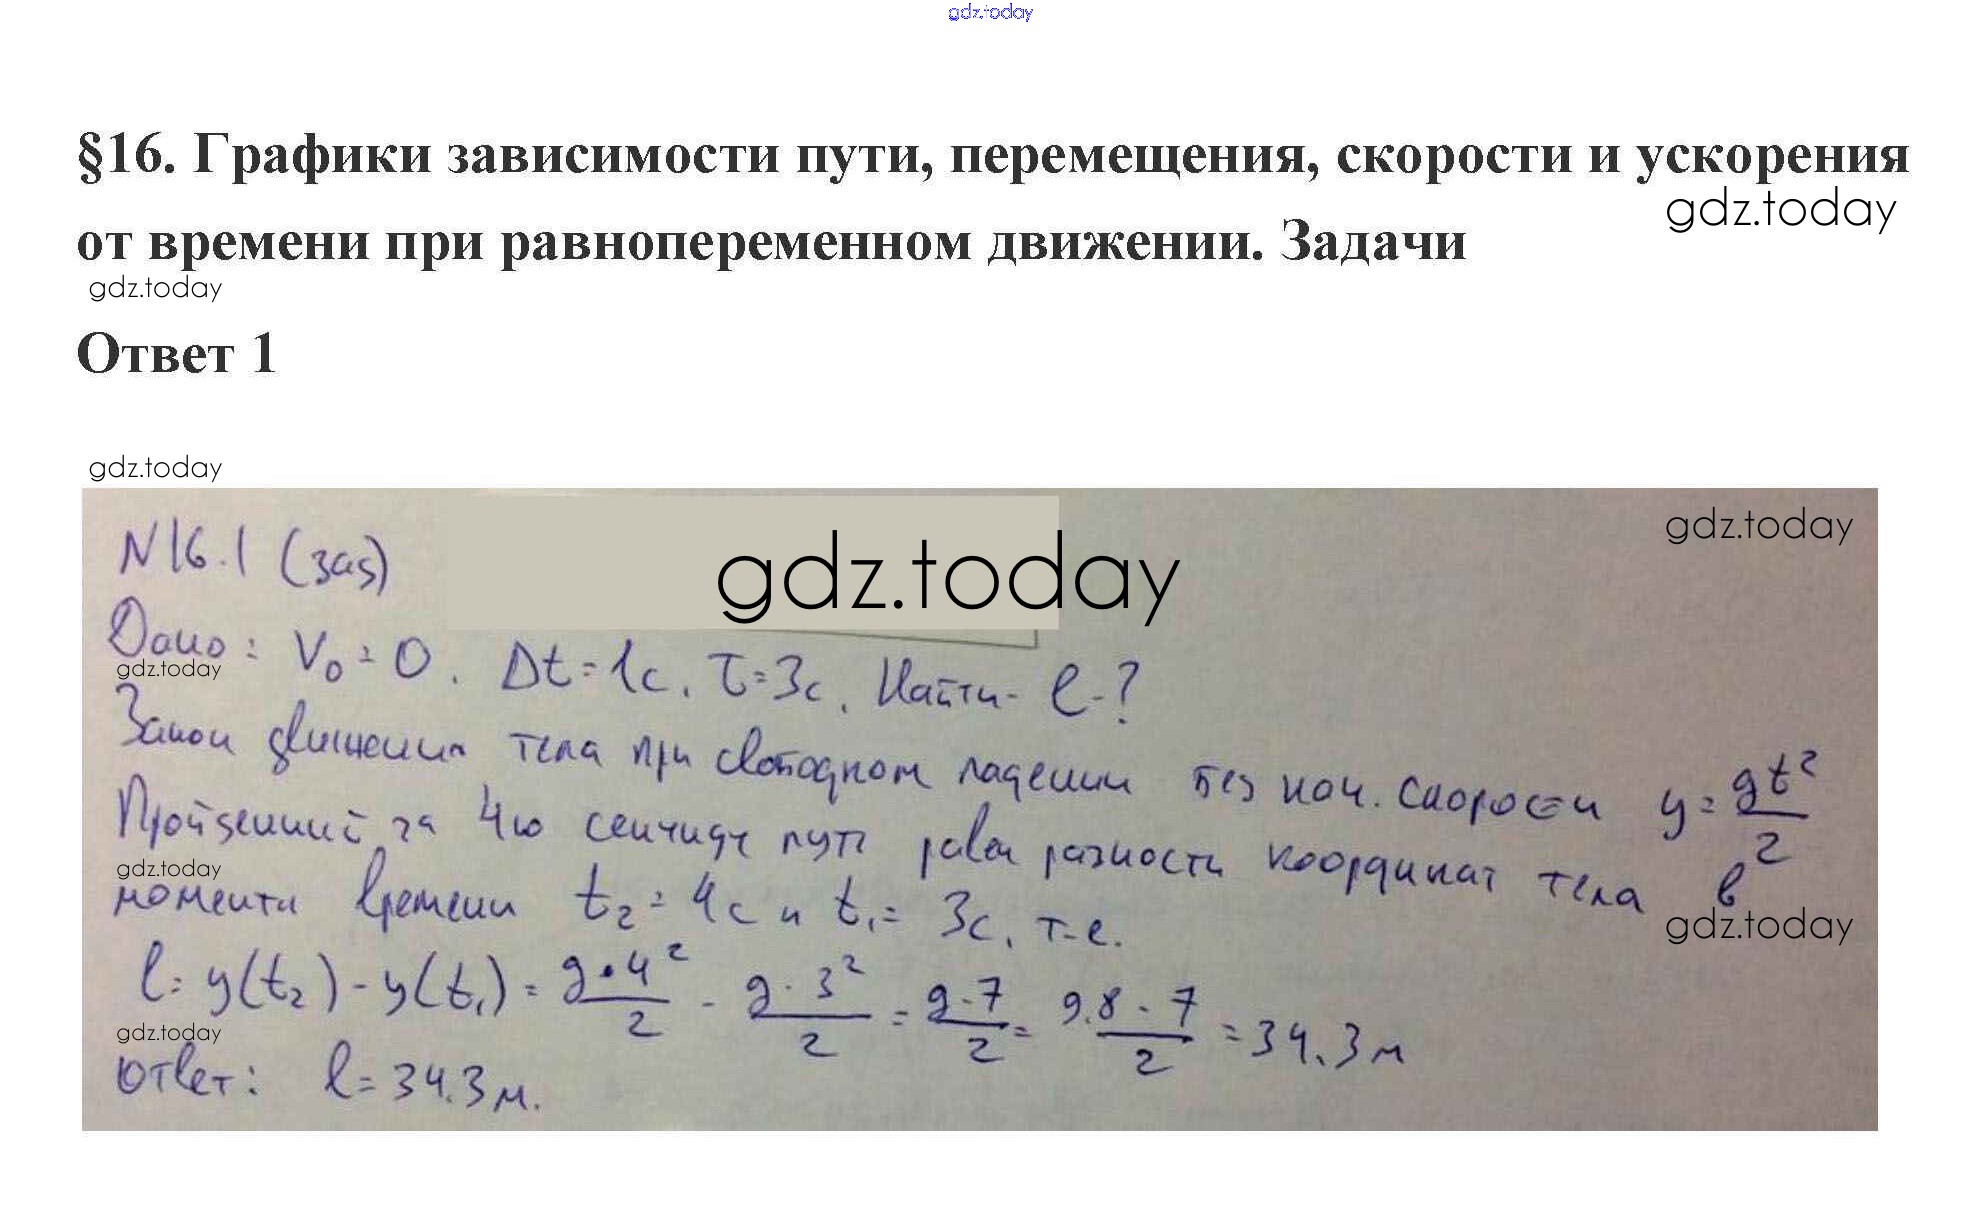 gdz.today
§16. Графики зависимости пути, перемещения, скорости и ускорения
gdz.today
от времени при равнопеременном движении. Задачи
gdz.today
Ответ 1
gdz.today
gdz.today
N16.1 (зад)
gdz.today
Дано: V₀=0. Δt=1с, τ=3с. Найти- l-?
gdz.today
Закон движения тела при свободном падении без нач. скорости y=gt²/2
Пройденный за 4ю секунду путь равен разности координат тела в
gdz.today
момента времени t₂=4с и t₁=3с, т-е.
gdz.today
l=y(t₂)-y(t₁)=g·4²/2 - g·3²/2 = g·7/2 = 9.8·7/2 = 34.3м
gdz.today
Ответ: l=34.3м.